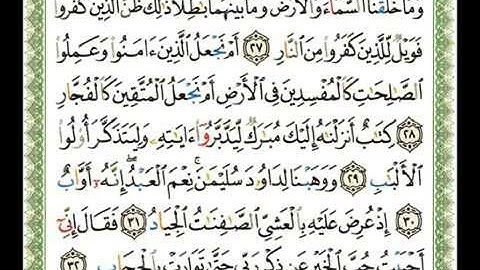 وَمَا خَلَقْنَا السَّمَاءَ وَالْأَرْضَ وَمَا بَيْنَهُمَا بَاطِلًا ذَٰلِكَ ظَنُّ الَّذِينَ كَفَرُوا
فَوَيْلٌ لِّلَّذِينَ كَفَرُوا مِنَ النَّارِ ٢٧ أَمْ نَجْعَلُ الَّذِينَ ءَامَنُوا وَعَمِلُوا
الصَّالِحَاتِ كَالْمُفْسِدِينَ فِي الْأَرْضِ أَمْ نَجْعَلُ الْمُتَّقِينَ كَالْفُجَّارِ
٢٨ كِتَابٌ أَنزَلْنَاهُ إِلَيْكَ مُبَارَكٌ لِّيَدَّبَّرُوا ءَايَاتِهِ وَلِيَتَذَكَّرَ أُولُوا
الْأَلْبَابِ ٢٩ وَوَهَبْنَا لِدَاوُدَ سُلَيْمَانَ ۚ نِعْمَ الْعَبْدُ ۖ إِنَّهُ أَوَّابٌ
٣٠ إِذْ عُرِضَ عَلَيْهِ بِالْعَشِيِّ الصَّافِنَاتُ الْجِيَادُ ٣١ فَقَالَ إِنِّي
أَحْبَبْتُ حُبَّ الْخَيْرِ عَن ذِكْرِ رَبِّي حَتَّىٰ تَوَارَتْ بِالْحِجَابِ ٣٢